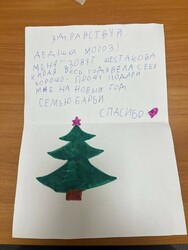 ЗДРАВСТВУЙ
ДЕДУШКА МОРОЗ!
МЕНЯ ЗОВУТ ШЕСТАКОВА
КИРА Я ВЕСЬ ГОД ВЕЛА СЕБЯ
ХОРОШО. ПРОШУ ПОДАРИ
МНЕ НА НОВЫЙ ГОД
СЕМЬЮ БАРБИ
СПАСИБО